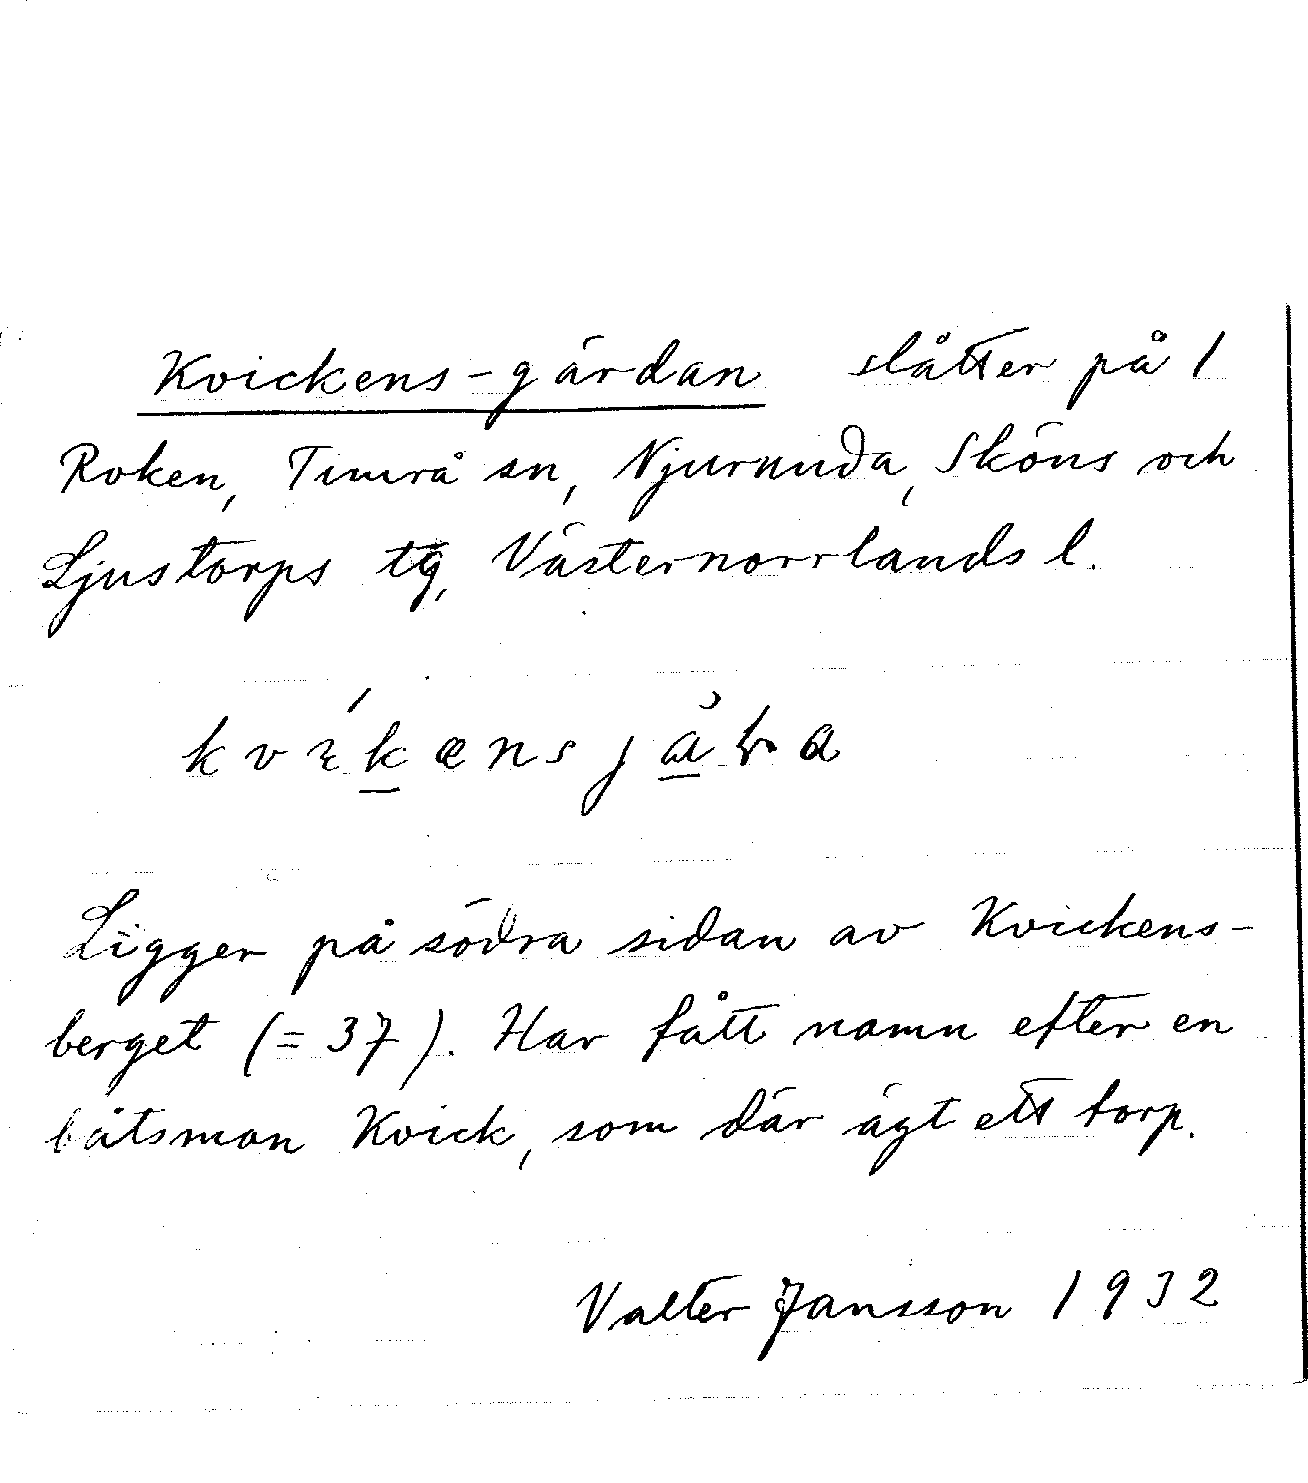 Kvickens-gärdan slåtter på 1
Roken, Timrå sn, Njurunda, Sköns och
Ljustorps tg, Västernorrlands l.
Ligger på södra sidan av Kvickens-
berget (= 37). Har fått namn efter en
båtsman Kvick, som där ägt ett torp.
Valter Jansson 1932